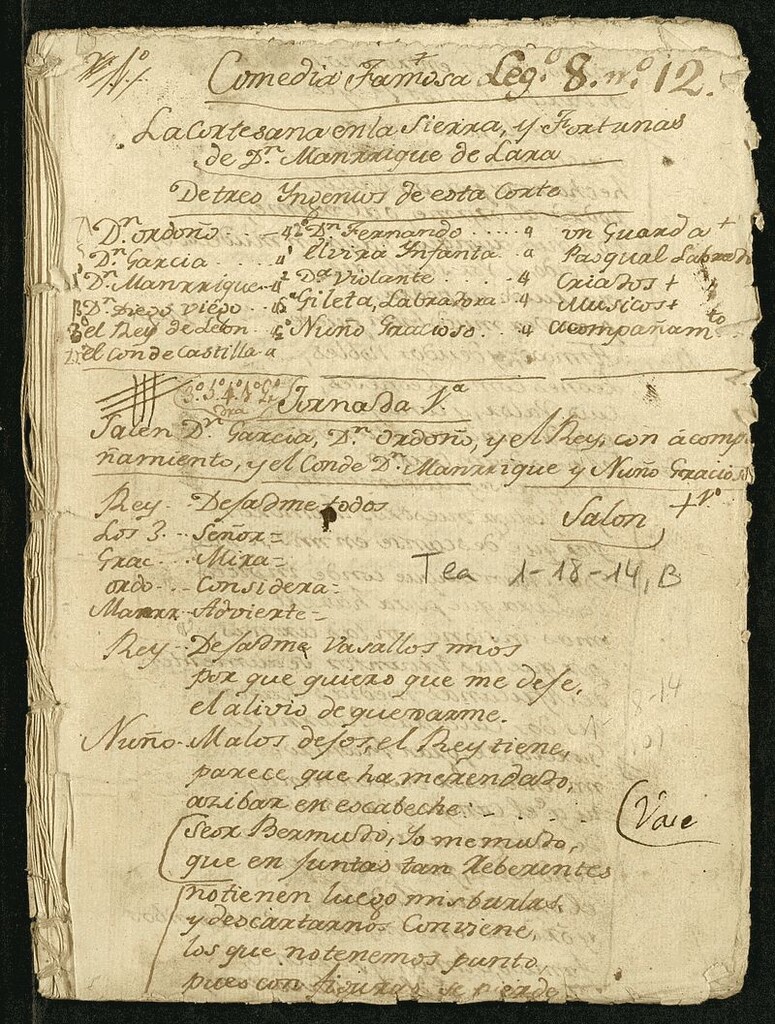 Comedia Famosa Leg.º 8. n.º 12.
La Cortesana en la Sierra, y Fortunas
de D.ⁿ Manrrique de Lara
De tres Yngenios de esta Corte
D.ⁿ Ordoño D.ⁿ Fernando un Guarda +
D.ⁿ Garcia Elvira Infanta Pasqual Labrador
D.ⁿ Manrrique D.ª Violante Criados +
D.ⁿ Diego viejo Gileta, Labradora Musicos +
el Rey de Leon Nuño Gracioso acompañam.to
el Conde Castilla
Jornada 1.ª
Salen D.ⁿ Garcia, D.ⁿ Ordoño, y el Rey, con acompa
ñamiento, y el Conde D.ⁿ Manrrique y Nuño Gracioso
Rey - Dejadme todos
Salon +
Los 3 - Señor =
Garc - Mira =
Ordo - Considera =
Manrr - Advierte =
Tea 1-18-14, B
Rey - Dejadme Vasallos mios
por que quiero que me deje,
el alivio de quexarme.
8-14
Nuño - Malos dejos, el Rey tiene,
parece que ha merendado,
azibar en escabeche:
Vale
Seor Bermudo, Yo me mudo,
que en juntas tan Reberentes
no tienen luego mis burlas
y descartarnos Conviene,
los que no tenemos punto,
pues con figuras se pierde